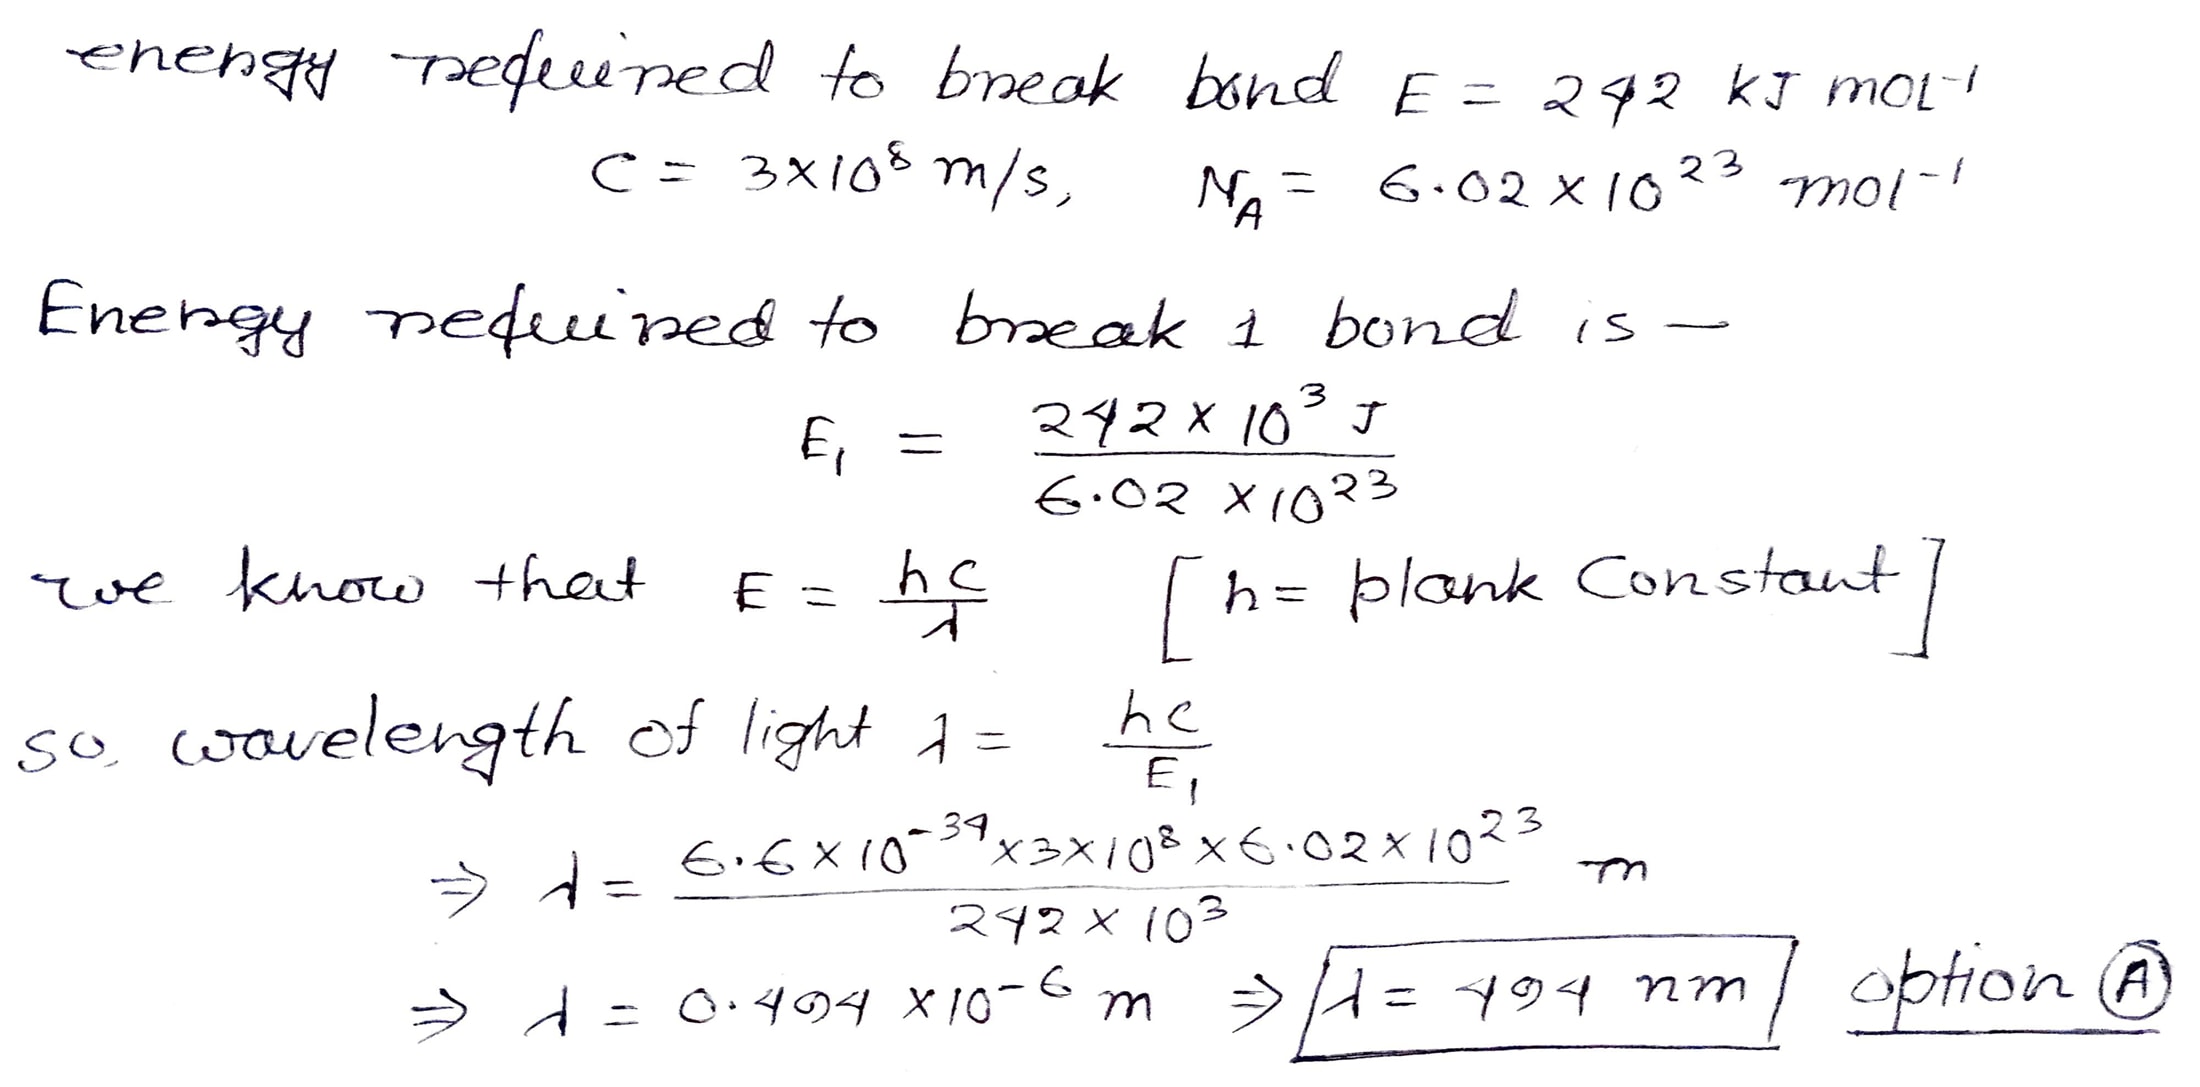 energy required to break bond E = 242 kJ mol⁻¹
C = 3×10⁸ m/s, N_A = 6.02 × 10²³ mol⁻¹
Energy required to break 1 bond is –
E₁ = (242 × 10³ J) / (6.02 × 10²³)
we know that E = hc/λ [h = plank Constant]
so, wavelength of light λ = hc/E₁
⇒ λ = (6.6 × 10⁻³⁴ × 3 × 10⁸ × 6.02 × 10²³) / (242 × 10³) m
⇒ λ = 0.494 × 10⁻⁶ m ⇒ λ = 494 nm option Ⓐ